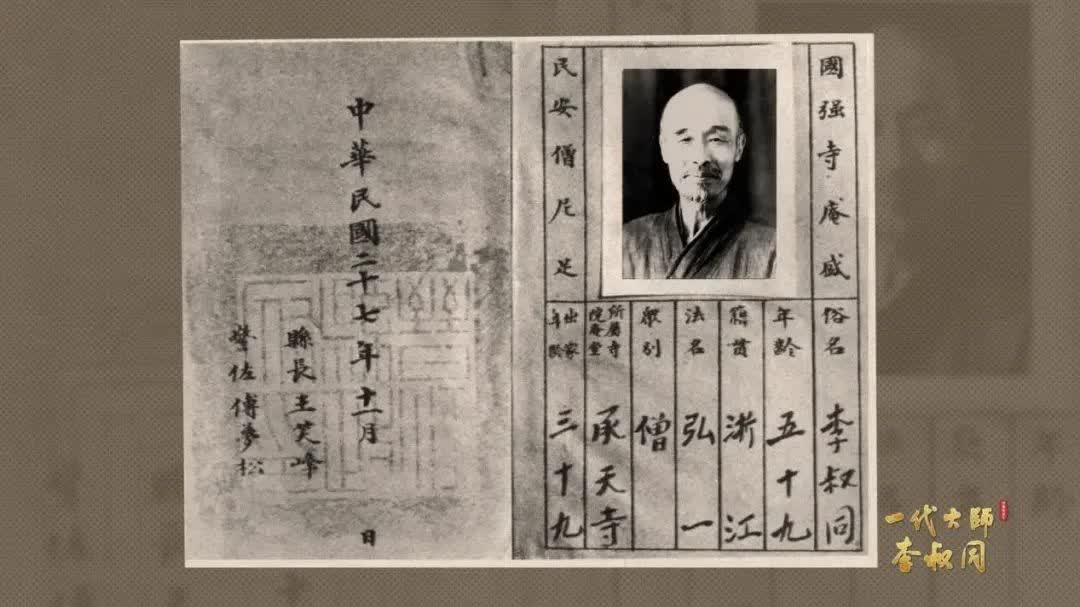 國强寺庵盛
民安僧尼足
俗名 李叔同
年齡 五十九
籍貫 浙江
法名 弘一
衆別 僧
所屬寺院庵堂 承天寺
出家年齡 三十九
中華民國二十七年十一月 日
縣長王笑峰
警佐傅夢松
一代大師
李叔同